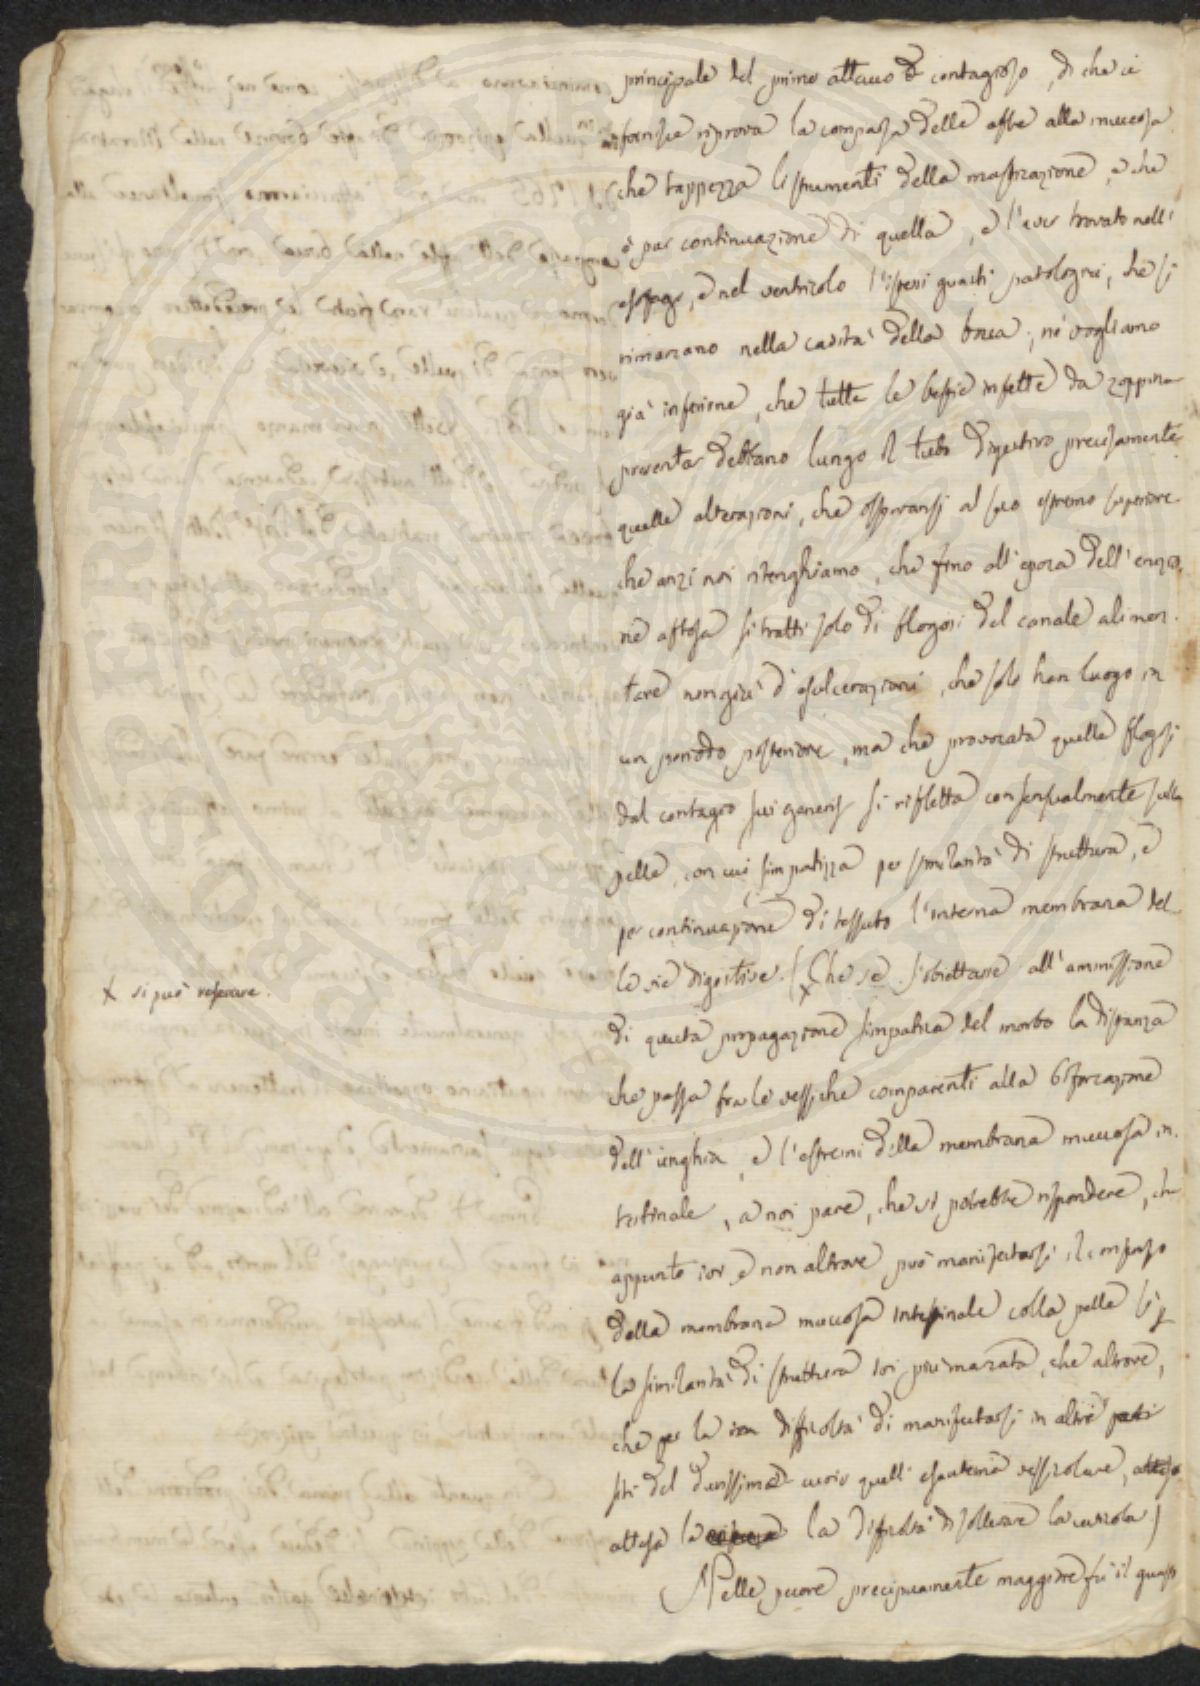 principale del primo attacco contagioso, di che ci
fornisce riprova la comparsa delle afte alla muccosa
che tappezza li strumenti della masticazione, e che
è pur continuazione di quella, e l'aver trovato nell'
esofago, e nel ventricolo l'istessi guasti patologici, che si
rimarcano nella cavità della bocca; né vogliamo
già inferirne, che tutte le bestie infette da zoppina
presentar debbano lungo il tubo digestivo precisamente
quelle alterazioni, che osservansi al suo estremo superiore.
che anzi noi ritenghiamo, che fino all'epoca dell'eruzio
ne aftosa si tratti solo di flogosi del canale alimen-
tare non già d'esulcerazioni, che solo han luogo in
un periodo posteriore, ma che provocata quella flogosi
dal contagio sui generis si rifletta consensualmente sulla
pelle, con cui simpatizza per similarità di struttura, e
per continuazione di tessuto l'interna membrana del-
le vie digestive. (Che se s'obiettasse all'ammissione
x si può resecare.
di questa propagazione simpatica del morbo la distanza
che passa fra le vessiche comparenti alla biforcazione
dell'unghia, e l'estremi della membrana muccosa in-
testinale, a noi pare, che si potrebbe rispondere, che
appunto ivi e non altrove può manifestarsi il consenso
della membrana muccosa intestinale colla pelle sì p
la similarità di struttura ivi più marcata, che altrove,
che per la difficoltà di manifestarsi in altri
siti del durissimo cuoio quell'esantema vessicolare,
attesa la la difficoltà di sollevare la cuticola)
Nelle pecore precipuamente maggiore fu il guasto